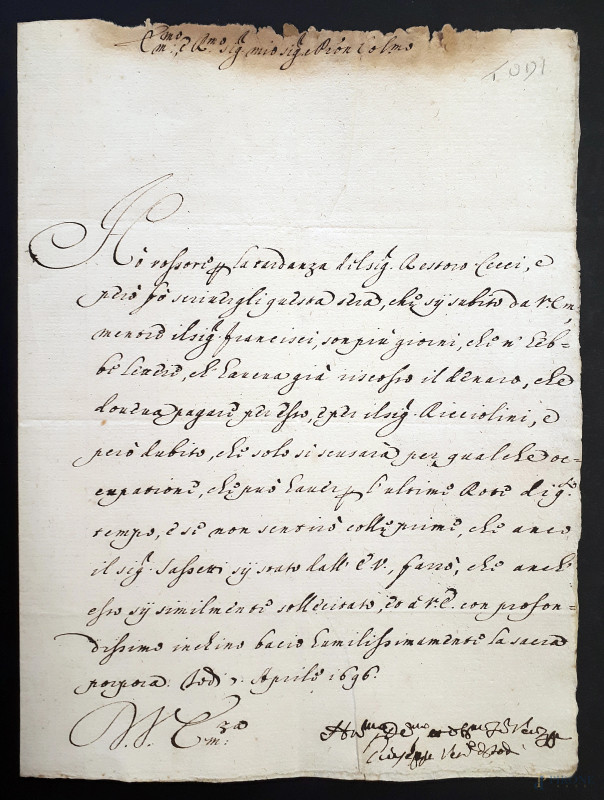 Em.mo, e R.mo Sig.r mio Sig.r e Pron Colmo
TODI
Hò rossore p la tardanza del sig. Restoro Cecci, e
però fò scrivergli questa sera, che sij subito da V. Em.
mentre il sig. Francisci, son più giorni, che n'heb-
be l'ordine, ch' haveva già riscosso il denaro, che
doveva pagare per esso, e per il sig. Ricciolini, e
però dubito, che solo si scusarà per qualche oc-
cupatione, che può haver p l'ultime Rote di q.o
tempo, e se non sentirò colle prime, che anco
il sig. Sassetti sij stato dall' E. V., farrò, che anch'
esso sij similmente sollecitato, et a V. E. con profon-
dissimo inchino bacio humilissimamente la sacra
porpora. Todi Aprile 1696.
D. V. Em.za
Hum.mo Dev.mo
Giuseppe Ves.o di Todi